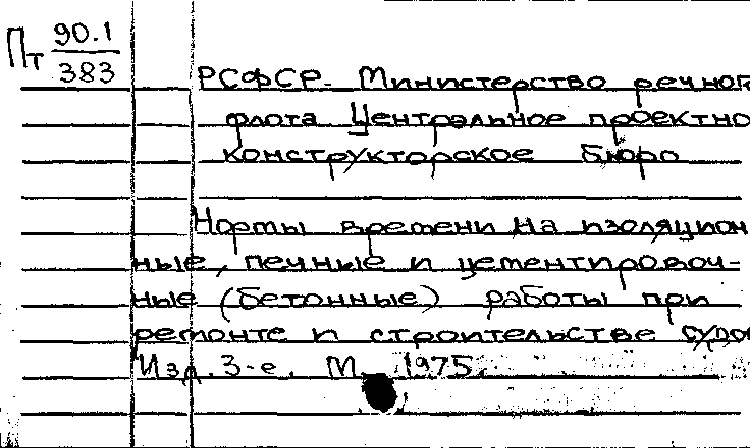 Пт 90.1
383
РСФСР. Министерство речног
флота Центральное проектно
конструкторское бюро
Нормы времени на изоляцион
ные, печные и цементировоч-
ные (бетонные) работы при
ремонте и строительстве судов
Изд. 3-е. М. 1975.